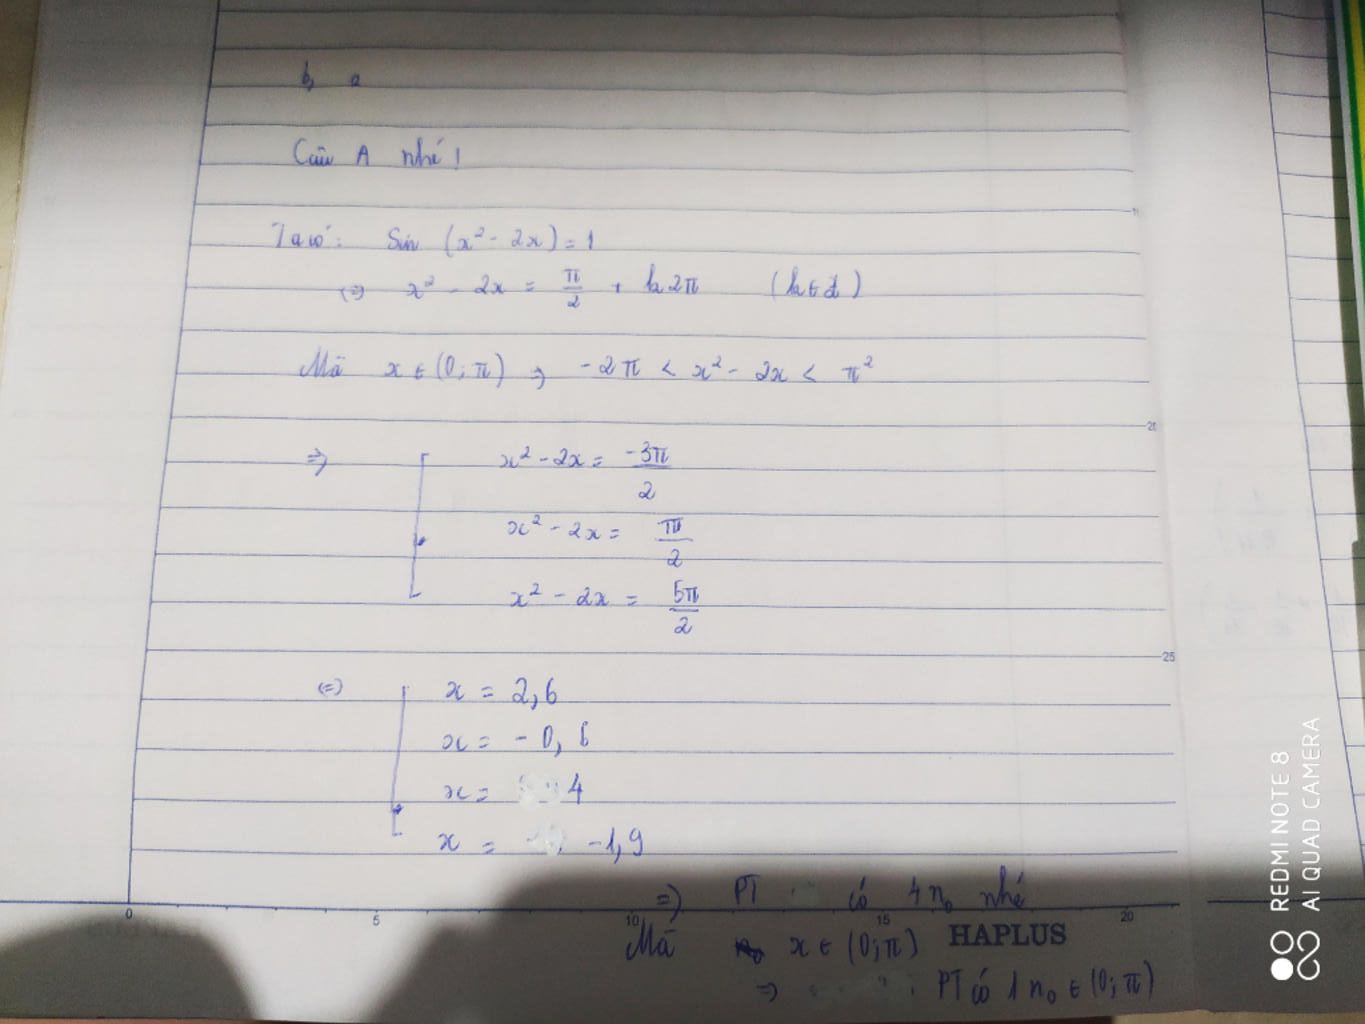 b, a
Câu A nhé!
Ta có: Sin (x² - 2x) = 1
(=) x² - 2x = π/2 + k2π (k ∈ Z)
Mà x ∈ (0; π) => -2π < x² - 2x < π²
=> x² - 2x = -3π/2
x² - 2x = π/2
x² - 2x = 5π/2
(=) x = 2,6
x = -0,6
x = 4
x = -1,9
=> PT có 4 n₀ nhé
Mà x ∈ (0; π)
=> PT có 1 n₀ ∈ (0; π)
11
20
25
0 5 10 15 20
HAPLUS
REDMI NOTE 8
AI QUAD CAMERA